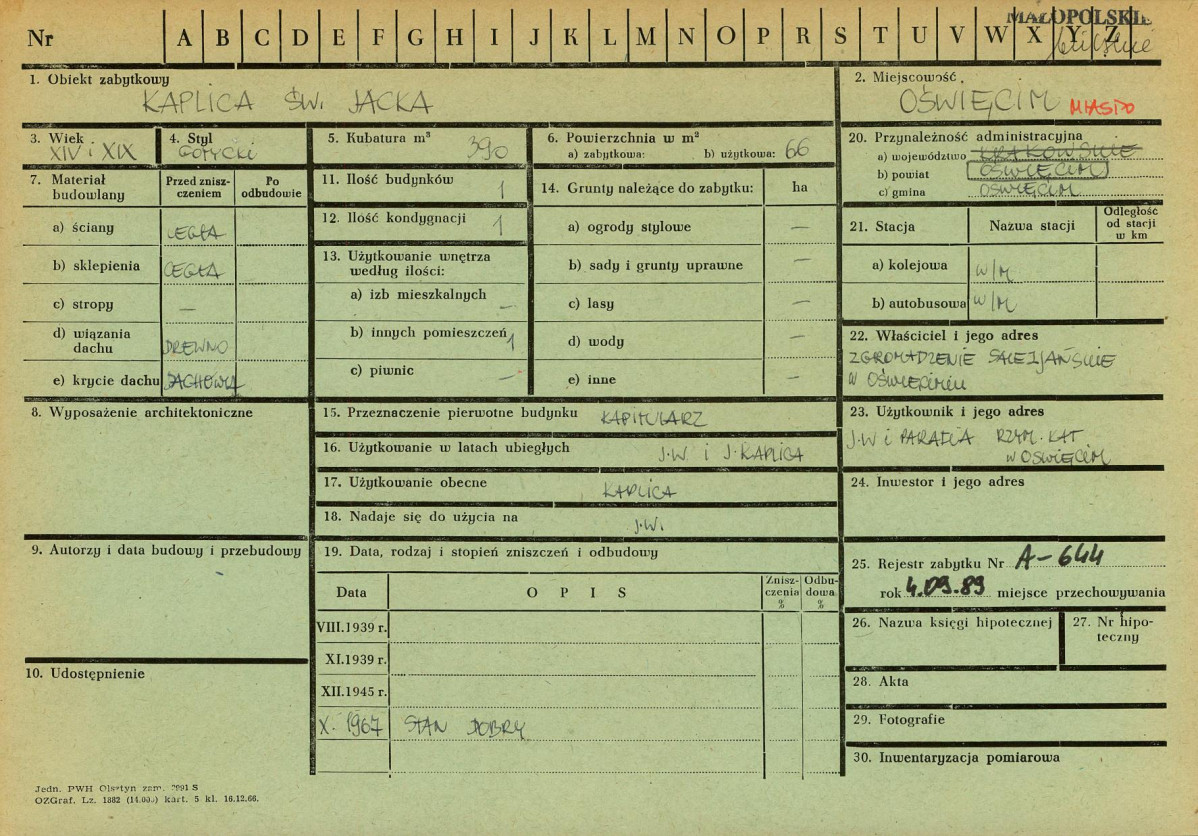 MAŁOPOLSKIE
Nr A B C D E F G H I J K L M N O P R S T U V W X Y Z
1. Obiekt zabytkowy
KAPLICA ŚW. JACKA
2. Miejscowość
OŚWIĘCIM MIASTO
3. Wiek
XIV i XIX
4. Styl
GOTYCKI
5. Kubatura m³ 390
6. Powierzchnia w m²
a) zabytkowa: b) użytkowa: 66
20. Przynależność administracyjna
a) województwo KRAKOWSKIE
b) powiat OŚWIĘCIM
c) gmina OŚWIĘCIM
7. Materiał budowlany
Przed zniszczeniem
Po odbudowie
a) ściany CEGŁA
b) sklepienia CEGŁA
c) stropy —
d) wiązania dachu DREWNO
e) krycie dachu DACHÓWKA
11. Ilość budynków 1
12. Ilość kondygnacji 1
13. Użytkowanie wnętrza
według ilości:
a) izb mieszkalnych —
b) innych pomieszczeń 1
c) piwnic —
14. Grunty należące do zabytku: ha
a) ogrody stylowe —
b) sady i grunty uprawne —
c) lasy —
d) wody —
e) inne —
21. Stacja
Nazwa stacji
Odległość
od stacji
w km
a) kolejowa W/M
b) autobusowa W/M
22. Właściciel i jego adres
ZGROMADZENIE SALEZJAŃSKIE
W OŚWIĘCIMIU
8. Wyposażenie architektoniczne
15. Przeznaczenie pierwotne budynku KAPITULARZ
16. Użytkowanie w latach ubiegłych J.W. I J. KAPLICA
17. Użytkowanie obecne KAPLICA
18. Nadaje się do użycia na J.W.
23. Użytkownik i jego adres
J.W i PARAFIA RZYM. KAT
W OŚWIĘCIM
24. Inwestor i jego adres
9. Autorzy i data budowy i przebudowy
19. Data, rodzaj i stopień zniszczeń i odbudowy
Data
OPIS
Zniszczenia
%
Odbudowa
%
VIII.1939 r.
XI.1939 r.
XII.1945 r.
X. 1967 STAN DOBRY
25. Rejestr zabytku Nr A-644
rok 4.09.89 miejsce przechowywania
26. Nazwa księgi hipotecznej
27. Nr hipoteczny
10. Udostępnienie
28. Akta
29. Fotografie
30. Inwentaryzacja pomiarowa
Jedn. PWH Olsztyn zam. 2991 S
OZGraf. Lz. 1882 (14.000) kart. 5 kl. 16.12.66.